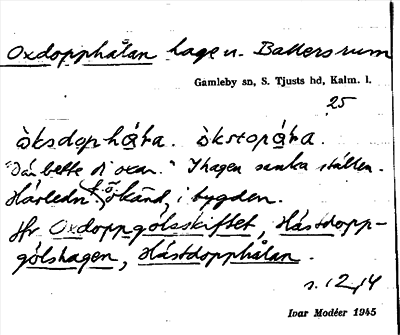 Oxdopphålan hage n. Ballersrum
Gamleby sn, S. Tjusts hd, Kalm. l.
25
òksdophå̀ra. òkstopå̀ra.
"Dän bette di oxar." I hagen sanka ställen.
Härledn. t. ö. okänd i bygden.
Jfr Oxdoppgölsskiftet, Hästdopp-
gölshagen, Hästdopphålan.
s. 12, 14
Ivar Modéer 1945